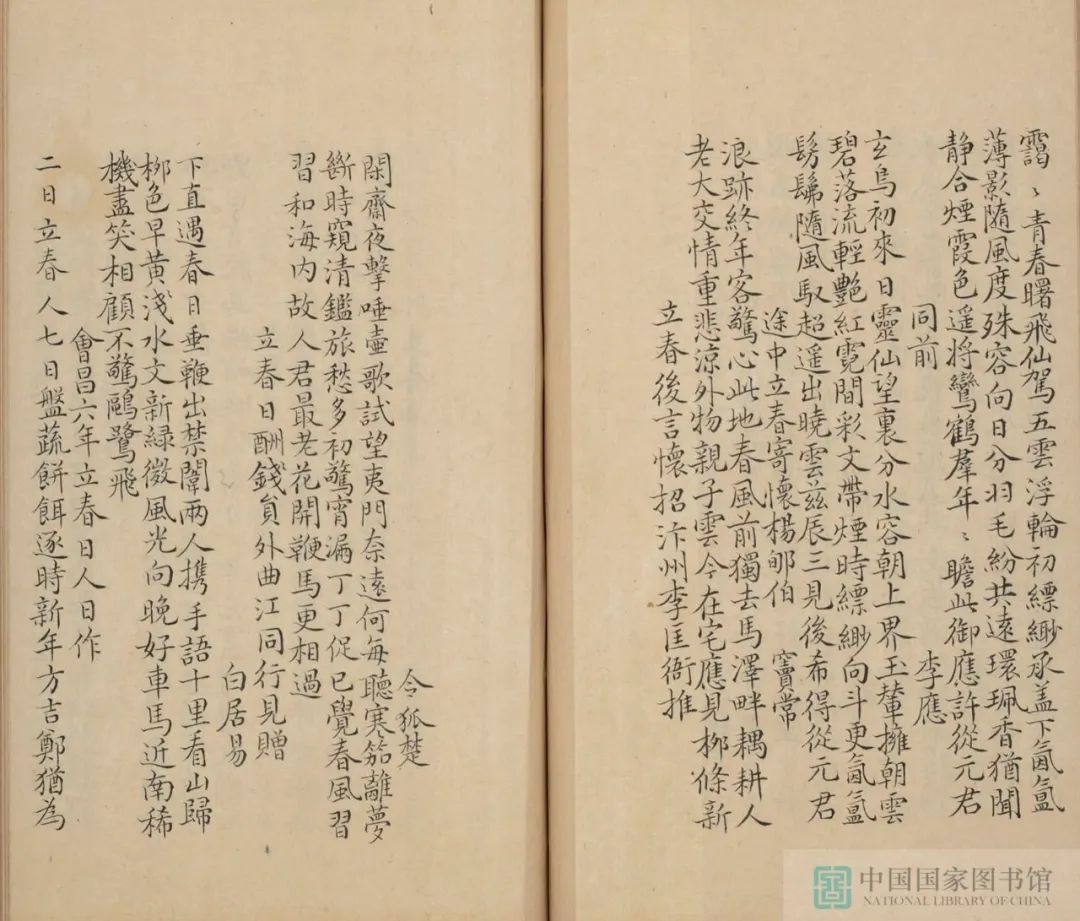 靄〻青春曙飛仙駕五雲浮輪初縹緲承盖下氤氲
薄影隨風度殊容向日分羽毛紛共遠環珮香猶聞
靜合煙霞色遥將鸞鶴羣年〻瞻此御應許從元君
同前 李應
玄鳥初來日靈仙望裏分水容朝上界玉輦擁朝雲
碧落流輕艷紅霓間彩文帶煙時縹緲向斗更氤氲
髣髴隨風馭超遥出曉雲兹辰三見後希得從元君
途中立春寄懷楊郇伯 竇常
浪跡終年客驚心此地春風前獨去馬澤畔耦耕人
老大交情重悲涼外物親子雲今在宅應見柳條新
立春後言懷招汴州李匡衙推
令狐楚
閑齋夜擊唾壷歌試望夷門奈遠何每聽寒笳離夢
斷時窺清鑑旅愁多初驚宵漏丁丁促已覺春風習
習和海内故人君最老花開鞭馬更相過
立春日酬錢負外曲江同行見贈
白居易
下直遇春日垂鞭出禁闈兩人携手語十里看山歸
柳色早黄淺水文新緑微風光向晚好車馬近南稀
機盡笑相顧不驚鷗鷺飛
會昌六年立春日人日作
二日立春人七日盤蔬餅餌逐時新年方吉鄭猶為
中国国家图书馆
NATIONAL LIBRARY OF CHINA